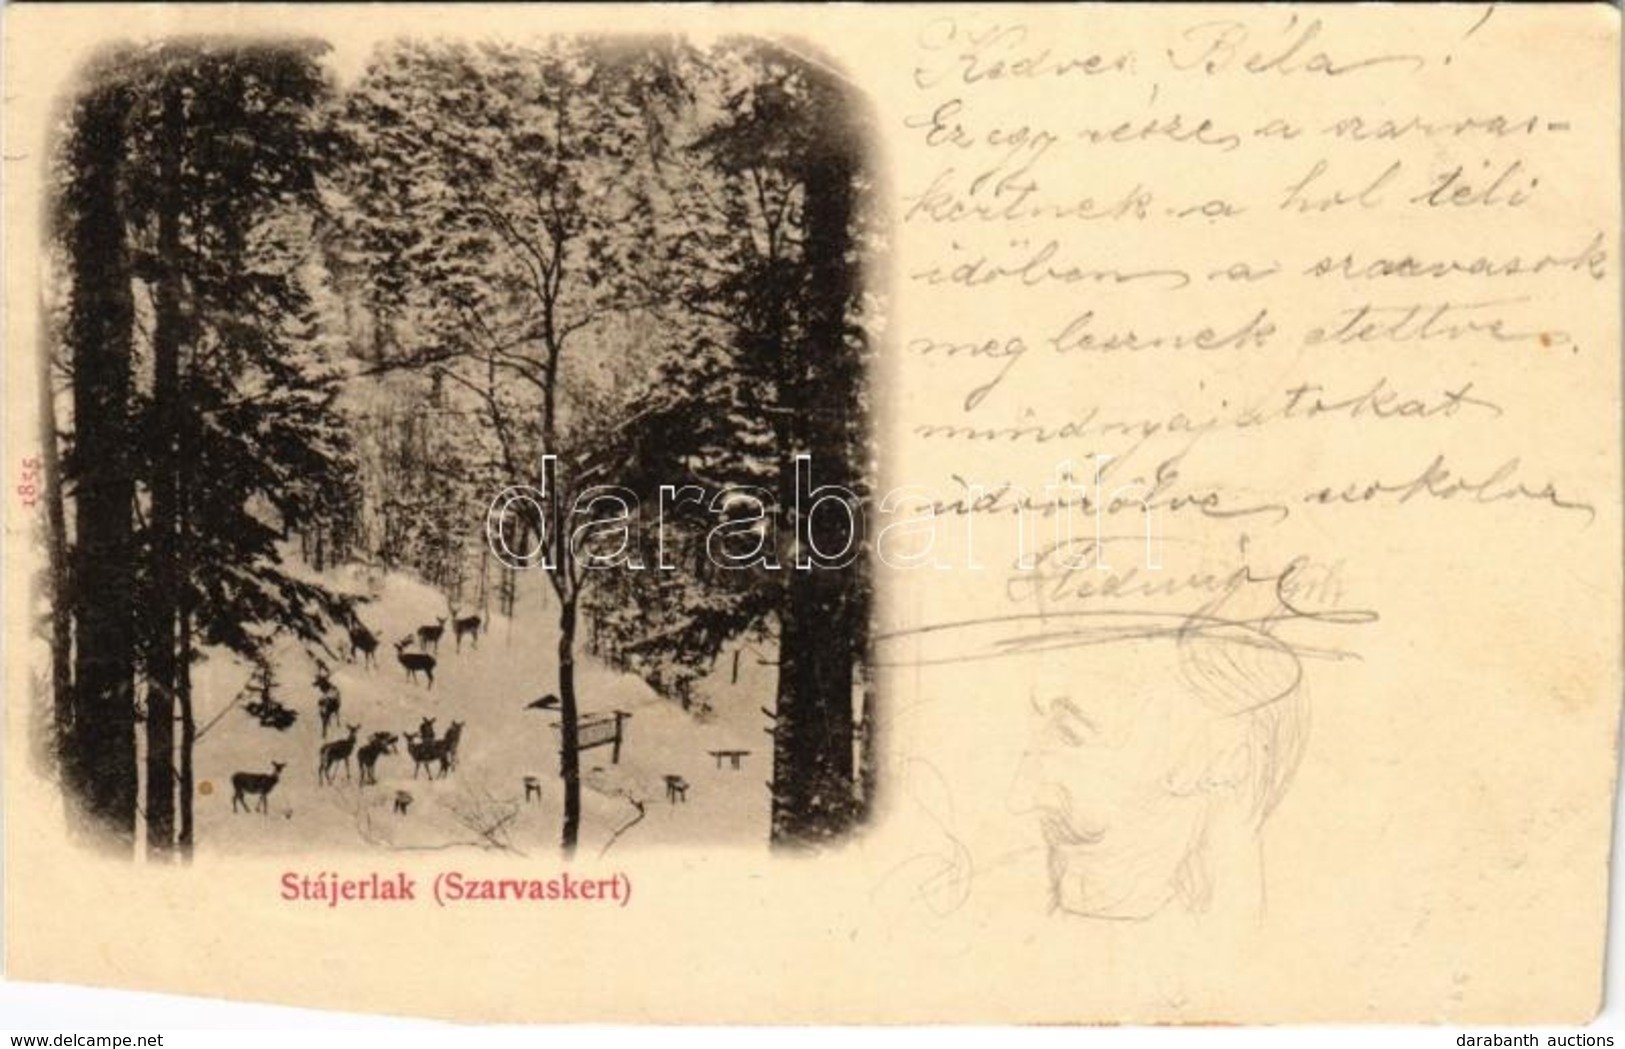 Kedves Béla!
Ez egy része a szarvas-
kertnek a hol téli
időben a szarvasok
meg lesznek etettve.
mindnyájatokat
üdvözölve, csokolor
Hedwig
1855
darabanth
Stájerlak (Szarvaskert)
darabanth.com
darabanth auctions